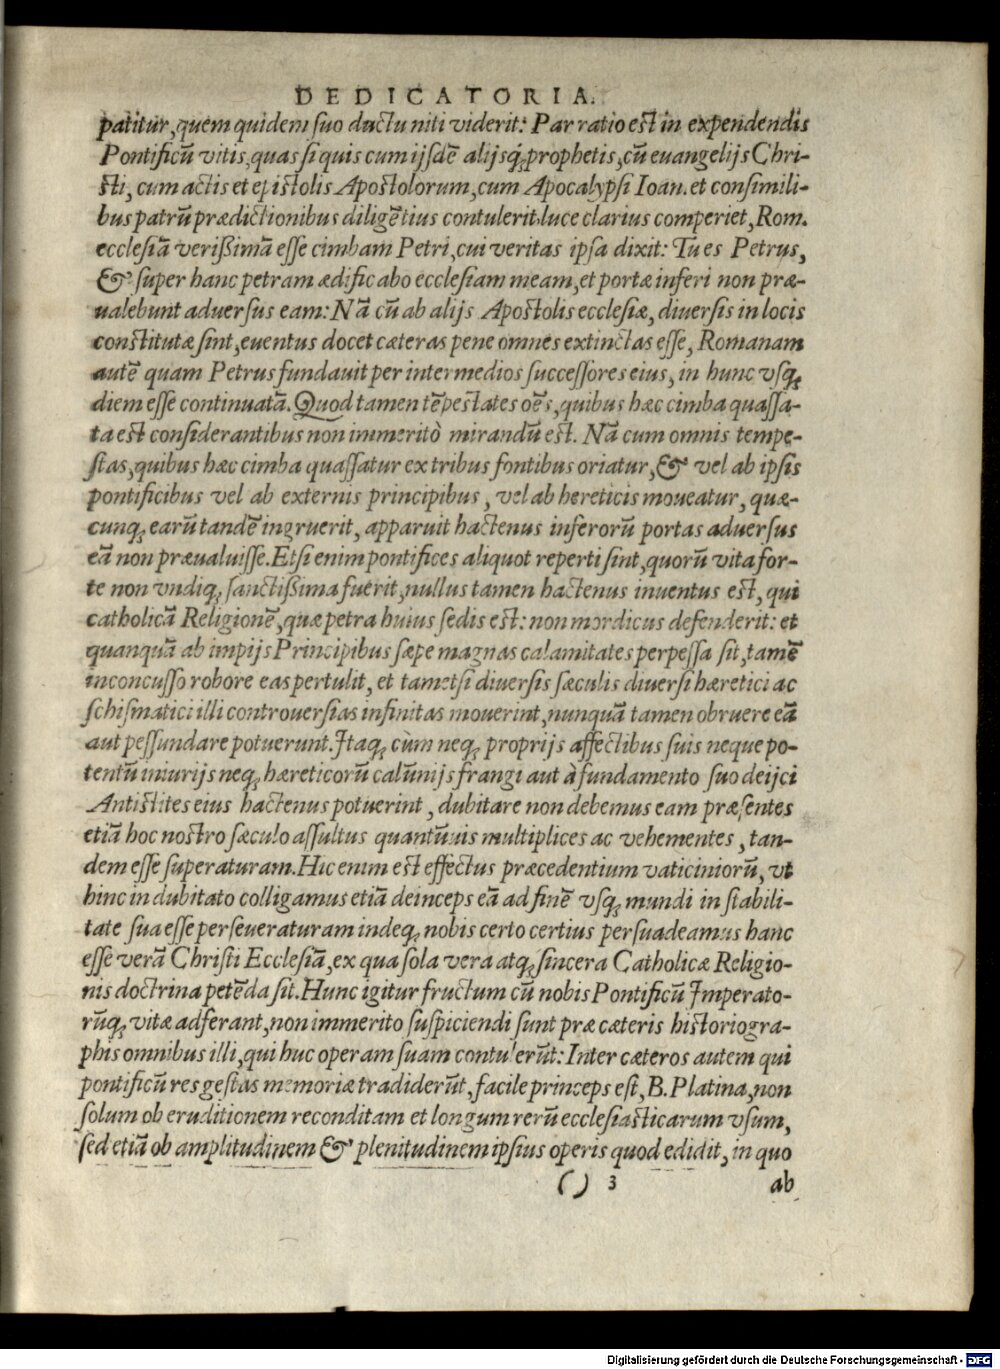 DEDICATORIA.
patitur, quem quidem suo ductu niti viderit: Par ratio est in expendendis
Pontificū vitis, quas si quis cum ijsdē alijsq́; prophetis, cū euangelijs Chri-
sti, cum actis et epistolis Apostolorum, cum Apocalypsi Ioan. et consimili-
bus patrū prædictionibus diligētius contulerit. luce clarius comperiet, Rom.
ecclesiā verißimā esse cimbam Petri, cui veritas ipsa dixit: Tu es Petrus,
& super hanc petram ædificabo ecclesiam meam, et portæ inferi non præ-
ualebunt aduersus eam: Nā cū ab alijs Apostolis ecclesiæ, diuersis in locis
constitutæ sint, euentus docet cæteras pene omnes extinctas esse, Romanam
autē quam Petrus fundauit per intermedios successores eius, in hunc vsq;
diem esse continuatā. Quod tamen tēpestates oēs, quibus hæc cimba quassa-
ta est considerantibus non immeritò mirandū est. Nā cum omnis tempe-
stas, quibus hæc cimba quassatur ex tribus fontibus oriatur, & vel ab ipsis
pontificibus vel ab externis principibus, vel ab hereticis moueatur, quæ-
cunq; earū tandē ingruerit, apparuit hactenus inferorū portas aduersus
eā non præualuisse. Etsi enim pontifices aliquot reperti sint, quorū vita for-
te non vndiq; sanctißima fuerit, nullus tamen hactenus inuentus est, qui
catholicā Religionē, quæ petra huius sedis est: non mordicus defenderit: et
quanquā ab impijs Principibus sæpe magnas calamitates perpessa sit, tamē
inconcusso robore eas pertulit, et tametsi diuersis sæculis diuersi hæretici ac
schismatici illi controuersias infinitas mouerint, nunquā tamen obruere eā
aut pessundare potuerunt. Itaq; cùm neq; proprijs affectibus suis neque po-
tentū iniurijs neq; hæreticorū calūnijs frangi aut à fundamento suo deijci
Antistites eius hactenus potuerint, dubitare non debemus eam præsentes
etiā hoc nostro sæculo assultus quantūuis multiplices ac vehementes, tan-
dem esse superaturam. Hic enim est effectus præcedentium vaticiniorū, vt
hinc indubitato colligamus etiā deinceps eā ad finē vsq; mundi in stabili-
tate sua esse perseueraturam indeq; nobis certo certius persuadeamus hanc
esse verā Christi Ecclesiā, ex qua sola vera atq; sincera Catholicæ Religio-
nis doctrina petēda sit. Hunc igitur fructum cū nobis Pontificū Imperato-
rūq; vitæ adferant, non immerito suspiciendi sunt præ cæteris historiogra-
phis omnibus illi, qui huc operam suam contulerūt: Inter cæteros autem qui
pontificū res gestas memoriæ tradiderūt, facile princeps est, B. Platina, non
solum ob eruditionem reconditam et longum rerū ecclesiasticarum vsum,
sed etiā ob amplitudinem & plenitudinem ipsius operis quod edidit, in quo
( ) 3 ab
Digitalisierung gefördert durch die Deutsche Forschungsgemeinschaft - DFG